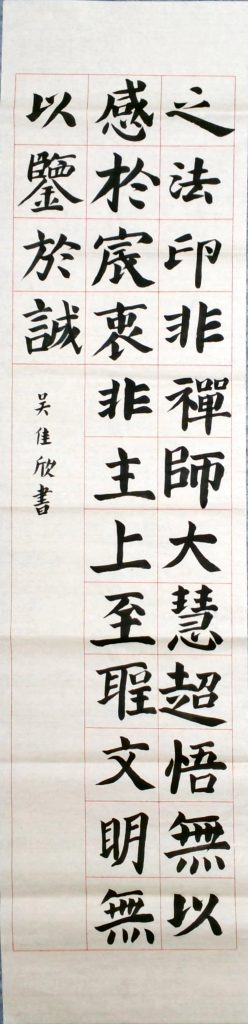 之法印非禪師大慧超悟無以
感於宸衷非主上至聖文明無
以鑒於誠
吴佳欣書